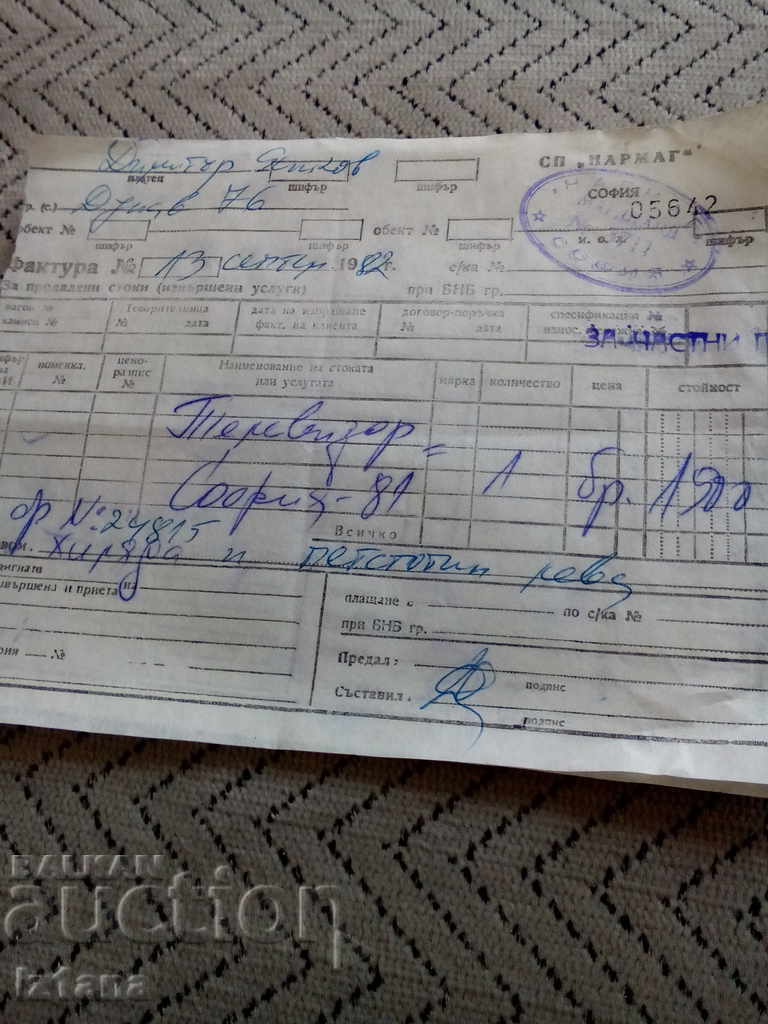 СП „НАРМАГ“
Димитър
платец шифър шифър
СОФИЯ
гр. (с.) Дунав 76 05642
обект № обект № и. о. п.
шифър шифър шифър шифър
Фактура № 13 септ. 1982 г. с/ка №
За продадени стоки (извършени услуги) при БНБ гр.
Товарителница № дата
дата на изпращане факт. на клиента
договор-поръчка № дата
спецификация №
ЗА ЧАСТНИ
номенкл. №
ценоразпис №
Наименование на стоката или услугата
марка
количество
цена
стойност
Телевизор =
София-81 1 бр. 1500
фр №: 24815
Всичко
Хиляда и петстотин лева
извършена и приета на
плащане с по с/ка №
при БНБ гр.
№
Предал:
подпис
Съставил:
подпис
BALKAN
auction
Iz1ana